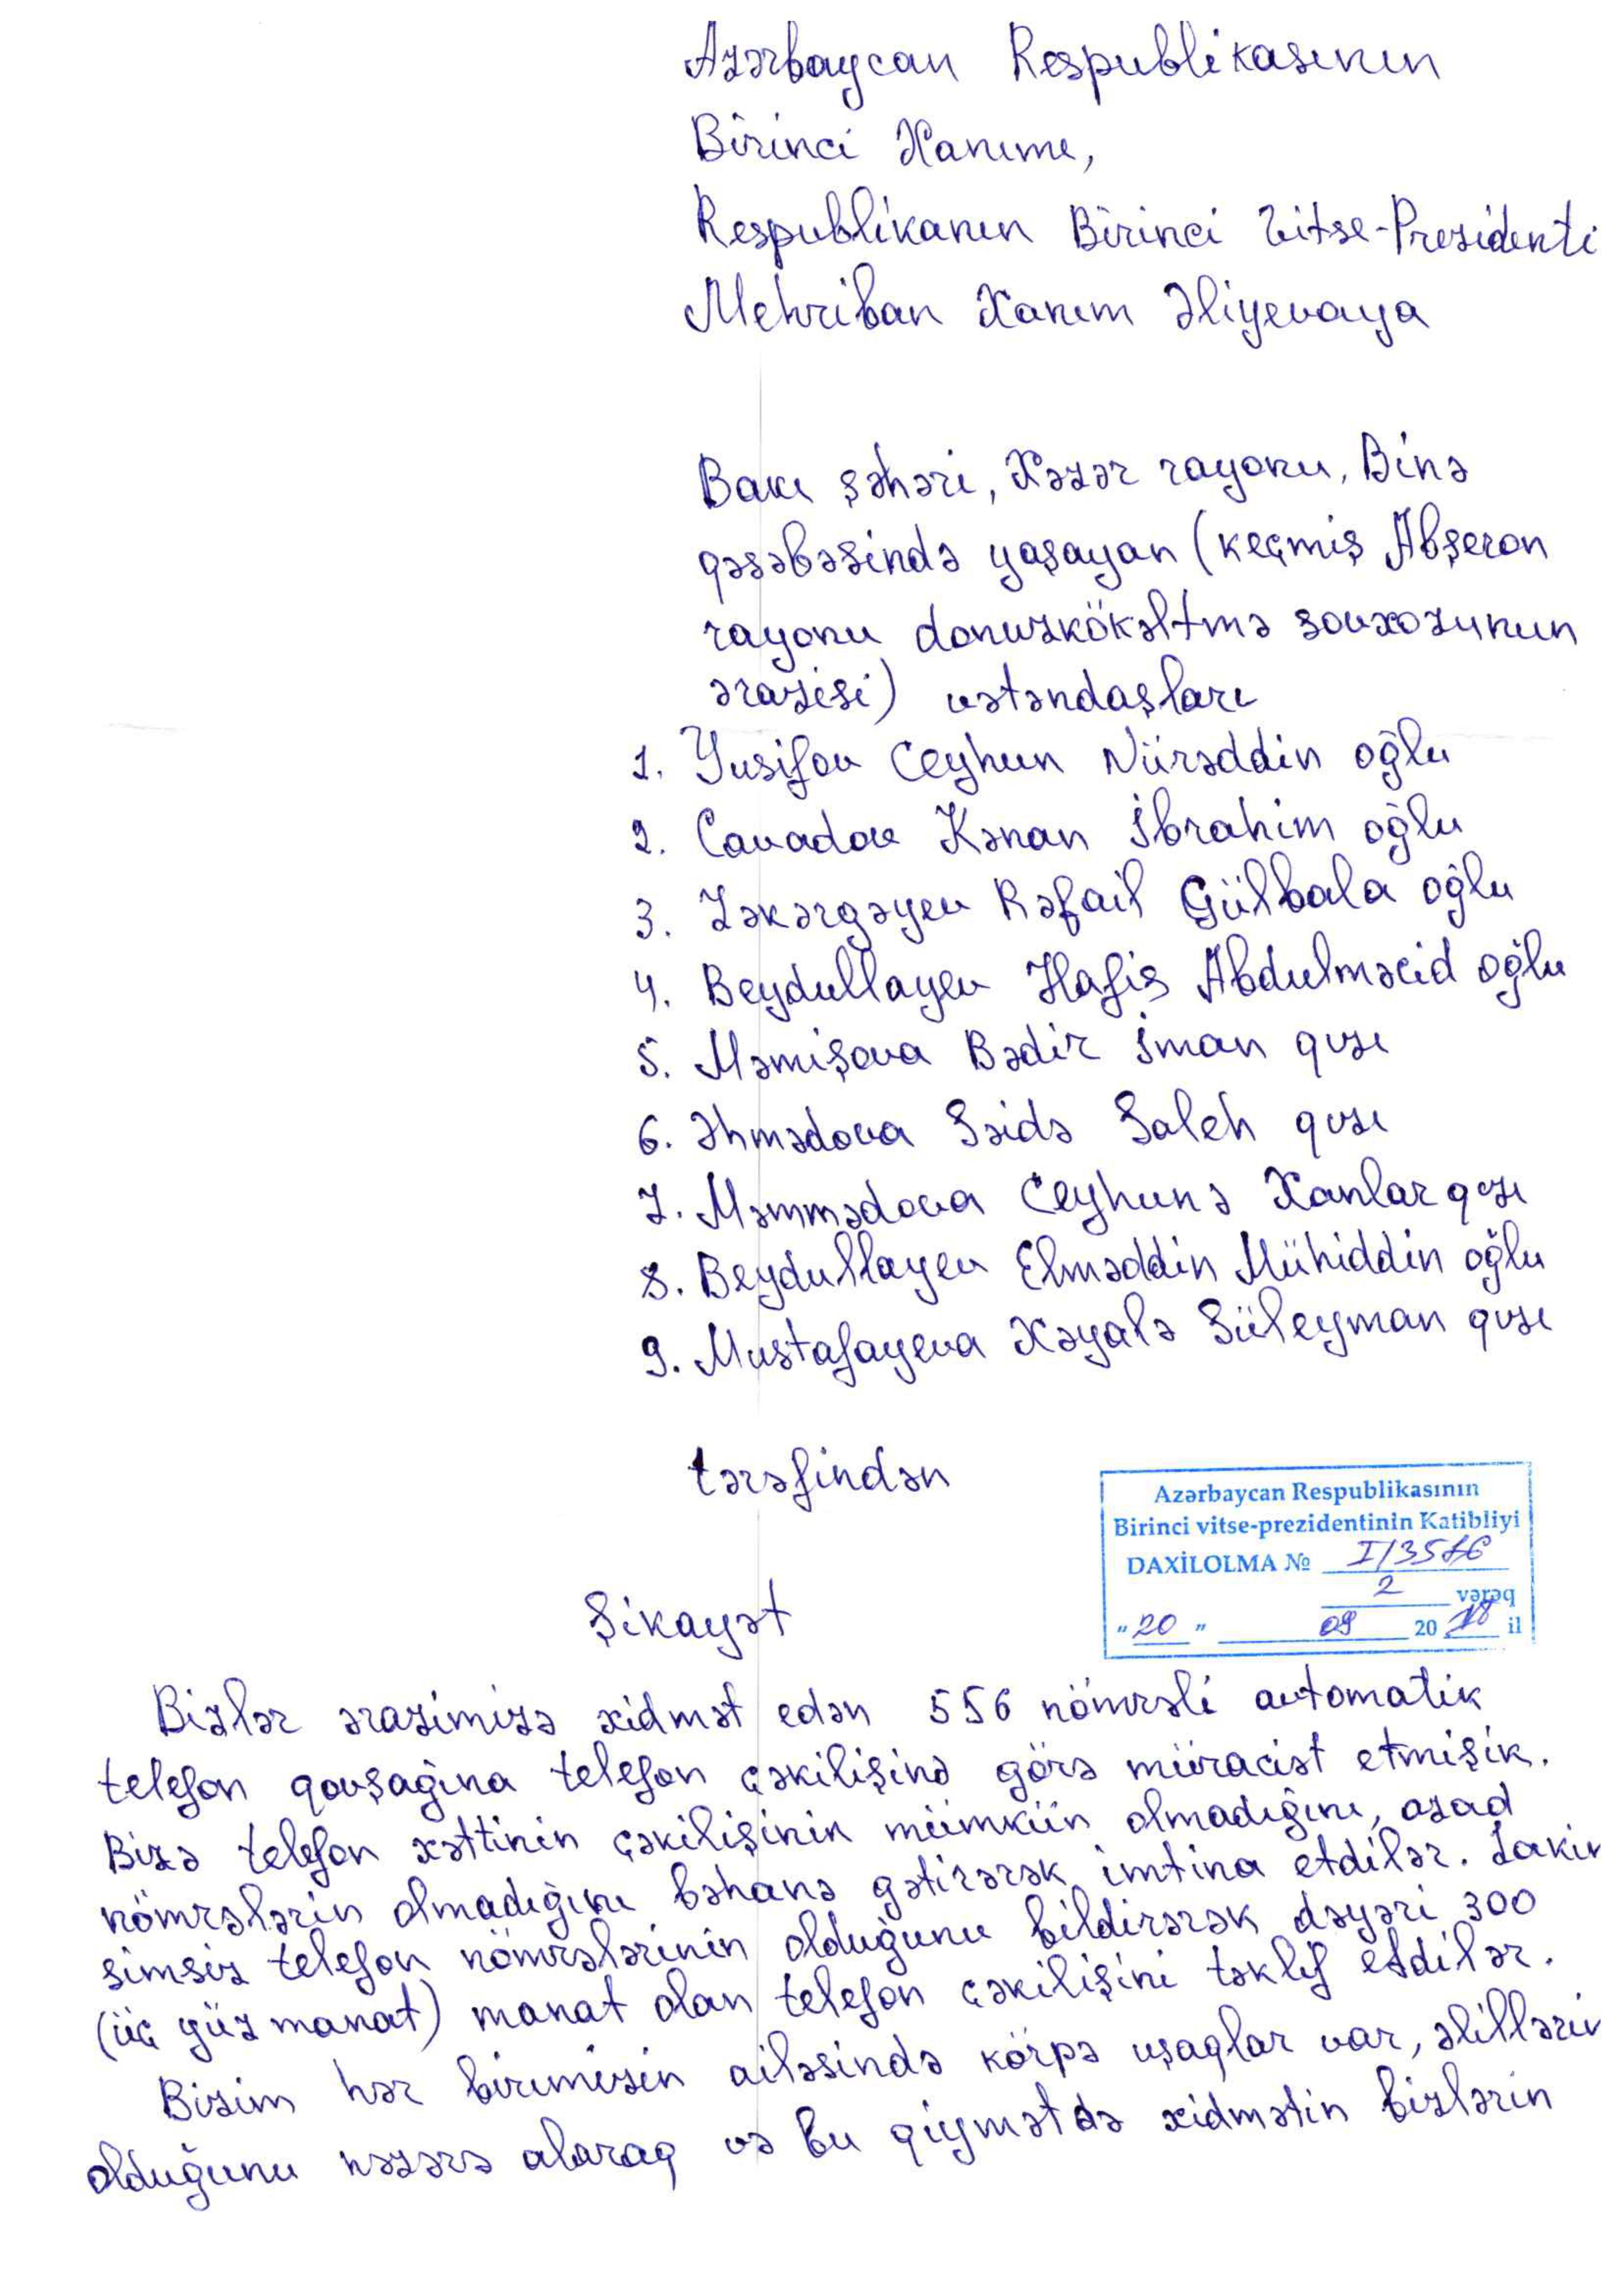 Azərbaycan Respublikasının
Birinci Xanımı,
Respublikanın Birinci Vitse-Prezidenti
Mehriban Xanım Əliyevaya
Bakı şəhəri, Xəzər rayonu, Binə
qəsəbəsində yaşayan (keçmiş Abşeron
rayonu donuzkökəltmə sovxozunun
ərazisi) vətəndaşları
1. Yusifov Ceyhun Nürəddin oğlu
2. Cavadov Kənan İbrahim oğlu
3. Zəkərgəyev Rəfail Gülbala oğlu
4. Beydullayev Hafis Abdulməcid oğlu
5. Məmişova Bədir İman qızı
6. Əhmədova Səidə Saleh qızı
7. Məmmədova Ceyhunə Xanlar qızı
8. Beydullayev Elməddin Mühiddin oğlu
9. Mustafayeva Xəyalə Süleyman qızı
tərəfindən
Azərbaycan Respublikasının
Birinci vitse-prezidentinin Katibliyi
DAXİLOLMA № I/3576
2 vərəq
"20" 09 2018 il
Şikayət
Bizlər ərazimizə xidmət edən 556 nömrəli avtomatik
telefon qovşağına telefon çəkilişinə görə müraciət etmişik.
Bizə telefon xəttinin çəkilişinin mümkün olmadığını, azad
nömrələrin olmadığını bəhanə gətirərək imtina etdilər. Lakin
simsiz telefon nömrələrinin olduğunu bildirərək dəyəri 300
(üç yüz manat) manat olan telefon çəkilişini təklif etdilər.
Bizim hər birimizin ailəsində körpə uşaqlar var, əlillərin
olduğunu nəzərə alaraq və bu qiymətdə xidmətin bizlərin